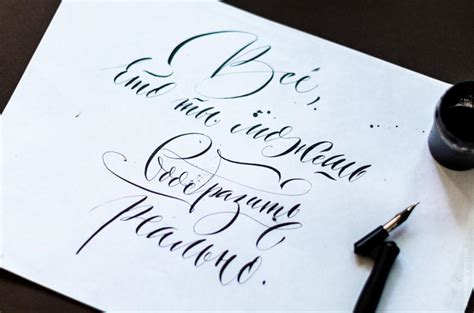 Всё,
что ты можешь
вообразить –
реально.